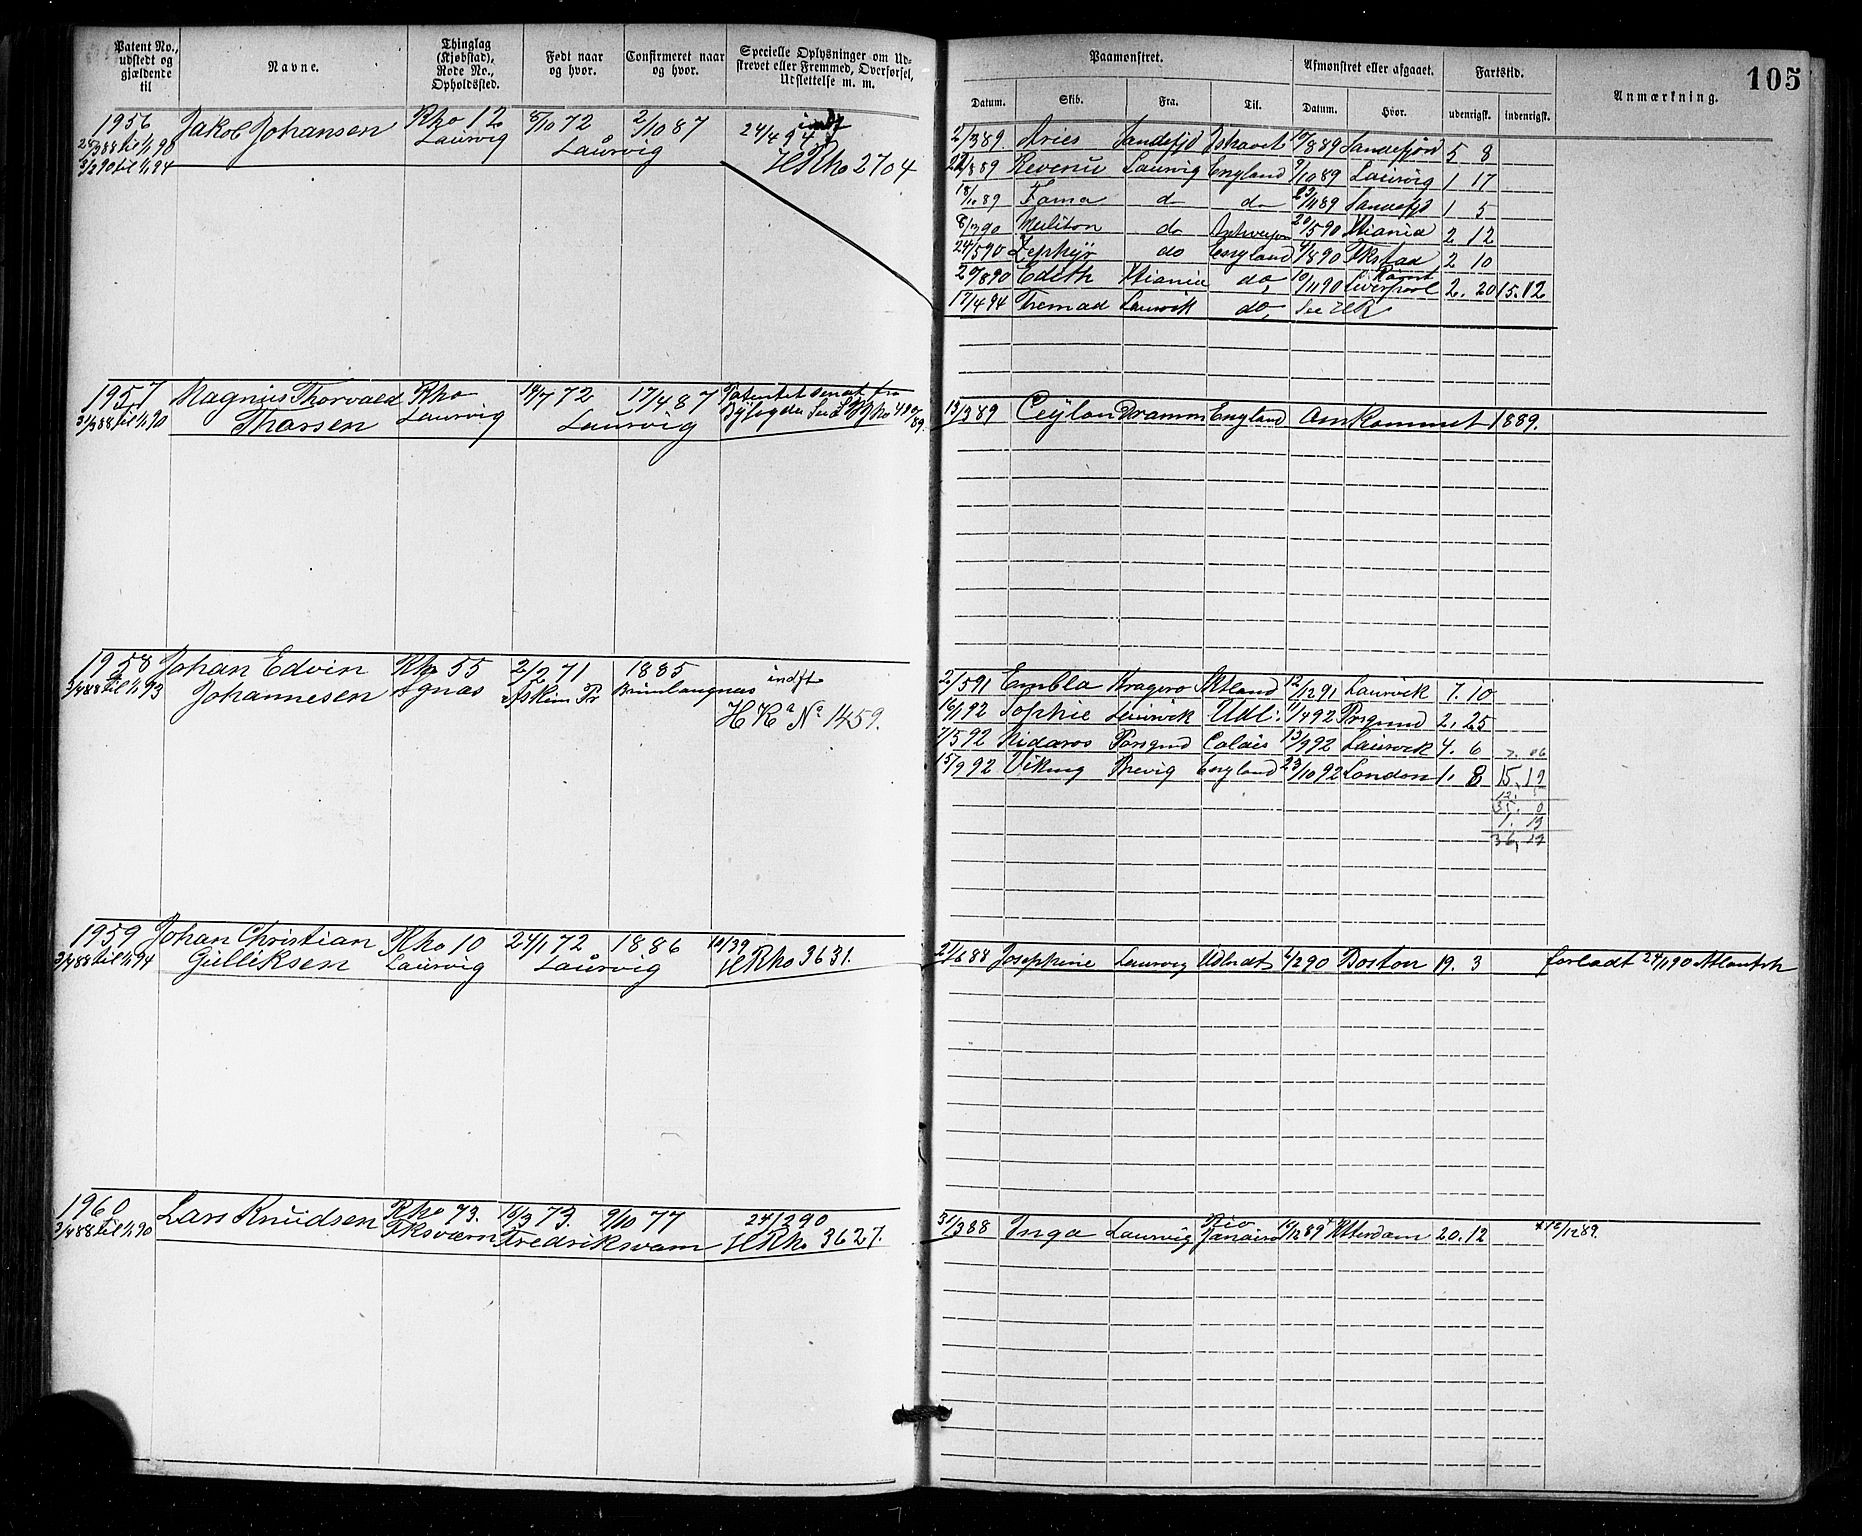 Patent No., udstedt og gjældende til
Navne.
Thinglag (Kjøbstad), Rode No., Opholdssted.
Født naar og hvor.
Confirmeret naar og hvor.
Specielle Oplysninger om Udskrevet eller Fremmed, Overførsel, Udslettelse m. m.
Paamønstret.
Afmønstret eller afgaaet.
Fartstid.
Anmærkning.
105
Datum. Skib. Fra. Til. Datum. Hvor. udenrigsk. indenrigsk.
1956 Jakob Johansen Rho 12 5/10 72 2/10 87 24/4 94 indf
Laurvig Laurvig HRho 2704
3/2 90 til 1/1 94
2/3 89 Aries Sandefjd Ishavet 10/8 89 Sandefjord 5 8
22/8 89 Laurvig England 9/10 89 Laurvig 1 17
18/10 89 Fama do do 23/11 89 Sandefjd 1 5
8/3 90 do Antwerpen 20/5 90 Xtiania 2 12
24/5 90 Zephyr do England 4/8 90 Fkstad 2 10
20/8 90 Edith Xtiania do, 10/11 90 Liverpool 2. 20 15. 12
17/4 94 Fremad Laurvik do, See HR
1957 Magnus Thorvald Rho 14/7 72 17/4 87 Patentet sendt fra
31/3 88 til 1/1 90 Thorsen Laurvig Laurvig
13/3 89 Ceylon Dramm England Omkommet 1889.
1958 Johan Edvin Rho 55 2/2 71 1885 indft
3/4 88 til 1/1 93 Johannesen Agnæs Askim Pr Brunlangnæs
HRa No 1459.
2/5 91 Embla Kragerø 12/12 91 Laurvik 7. 10
16/1 92 Sophie Laurvik Udl. 11/4 92 Prsgrund 2. 25
7/5 92 Nidaros Porsgrnd Calais 13/9 92 Laurvik 4. 6
15/9 92 Viking Brevig England 23/10 92 London 1. 8 15. 19
35. 0
1. 19
36, 19
1959 Johan Christian Rho 10 24/1 72 1886
3/4 88 til 1/1 94 Gulliksen Laurvig Laurvig HRho 3631.
21/6 88 Josephine Laurvig Udlndt 4/2 90 Boston 19. 3 forladt 24/1 90 Atlantch
1960 Lars Knudsen Rho 73. 16/3 73. 9/10 77 24/2 90
3/4 88 til 1/1 90 Fksværn Fredriksværn HRho 3627.
31/3 88 Inga Laurvig Rio Janairo 12/12 89 Rtterdam 20. 12 12/12 89.